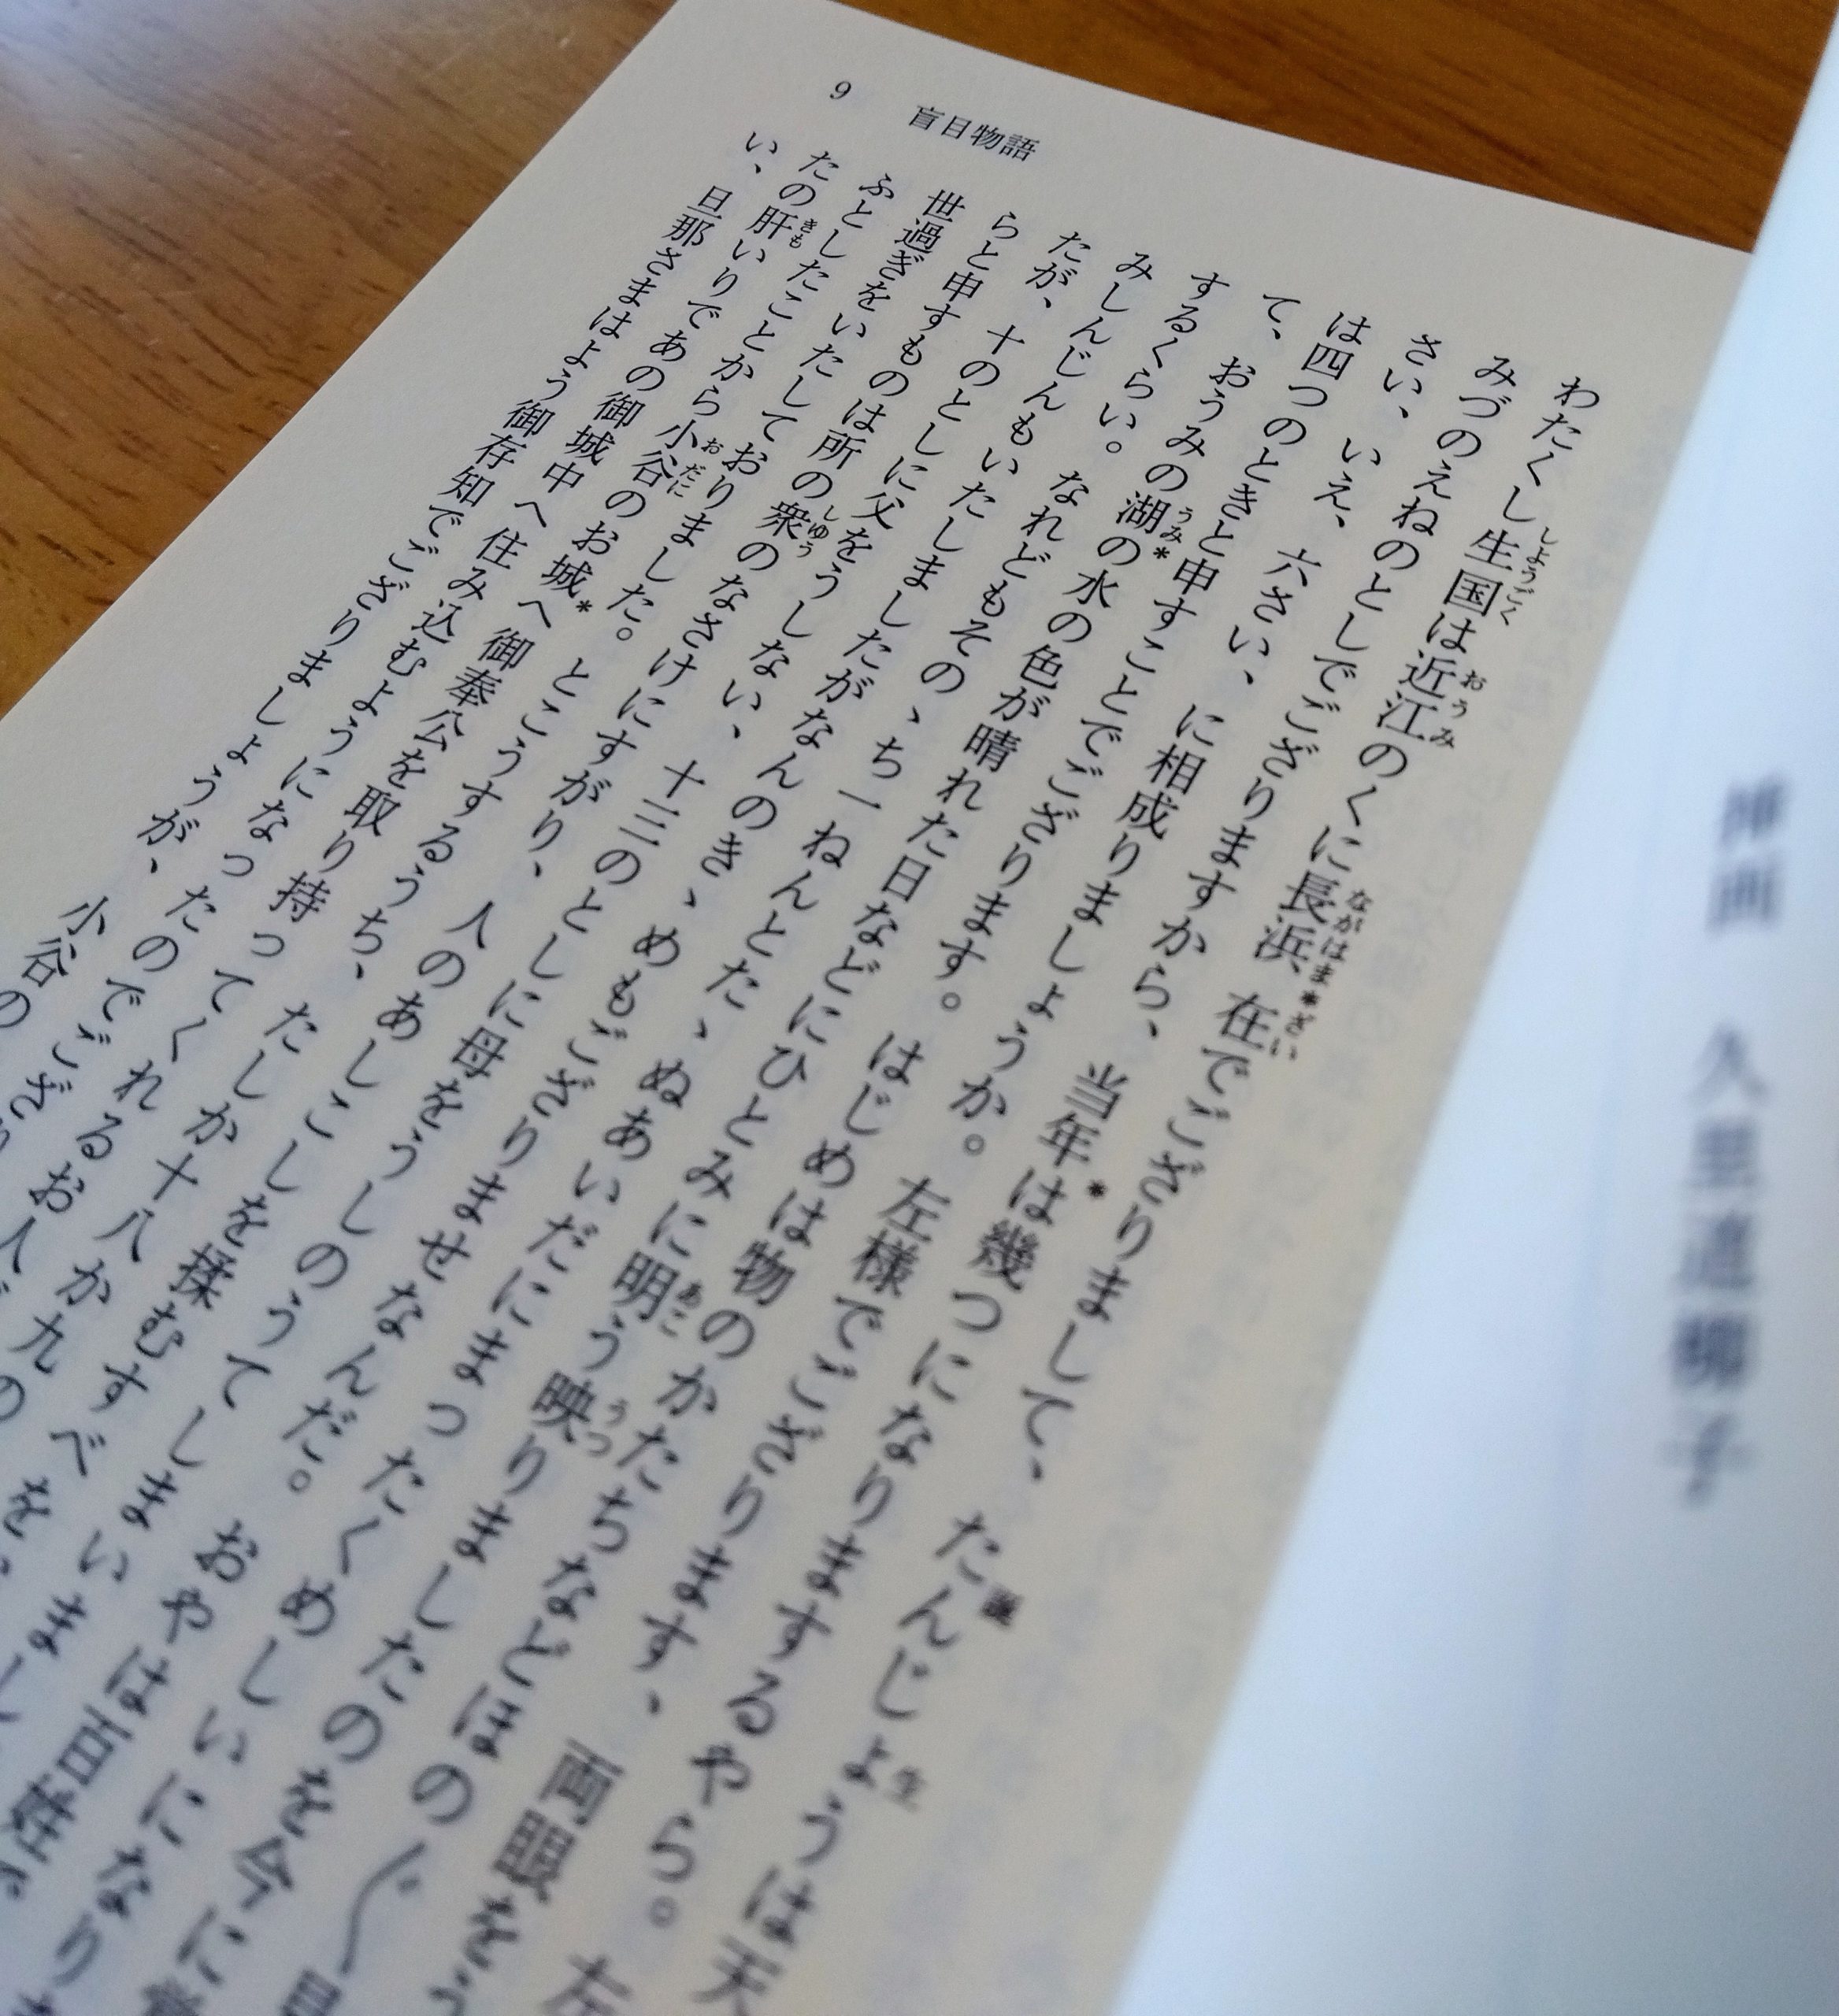 9 盲目物語
挿画
わたくし生国は近江のくに長浜*在でござりまして、たんじょうは天
みづのえねのとしでござりますから、当年*は幾つになりまするやら。左
さい、いえ、六さい、に相成りましょうか。左様でござります、両眼をう
は四つのときと申すことでござります。はじめは物のかたちなどほの〴〵
て、おうみの湖*の水の色が晴れた日などにひとみに明う映りましたのを今に覚
するくらい。なれどもそのゝち一ねんとたゝぬあいだにまったくめしいになり
みしんじんもいたしましたがなんのきゝめもござりませなんだ。おやは百姓で
たが、十のとしに父をうしない、十三のとしに母をうしのうてしまいまし
らと申すものは所の衆のなさけにすがり、人のあしこしを揉むすべを
世過ぎをいたしておりました。とこうするうち、たしか十八か九の
ふとしたことから小谷のお城*へ御奉公を取り持ってくれるお人
たの肝いりであの御城中へ住み込むようになったのでござり
い、旦那さまはよう御存知でござりましょうが、小谷の